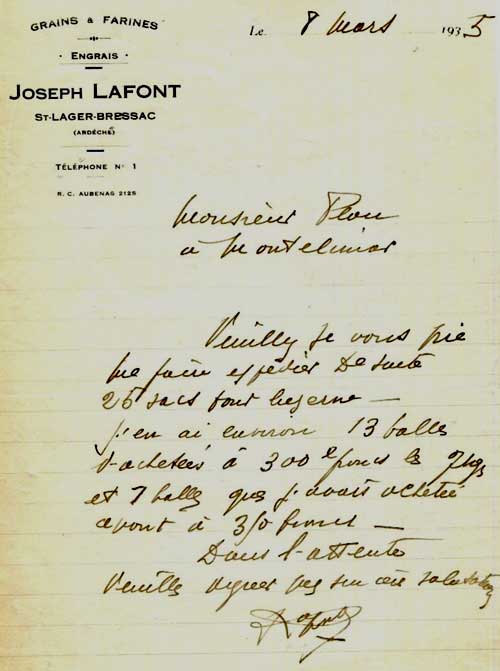 GRAINS & FARINES
ENGRAIS
JOSEPH LAFONT
ST-LAGER-BRESSAC
(ARDÈCHE)
TÉLÉPHONE N° 1
R. C. AUBENAS 2125
Le 8 Mars 1935
Monsieur
à Montelimar
Veuilly je vous prie
me faire expédier De suite
25 sacs luzerne —
j'en ai environ 13 balles
achetées à 300 les
et 7 balles que j'avais acheté
avant à 310 francs —
Dans l'attente
Veuillez agreer salutations
Lafont